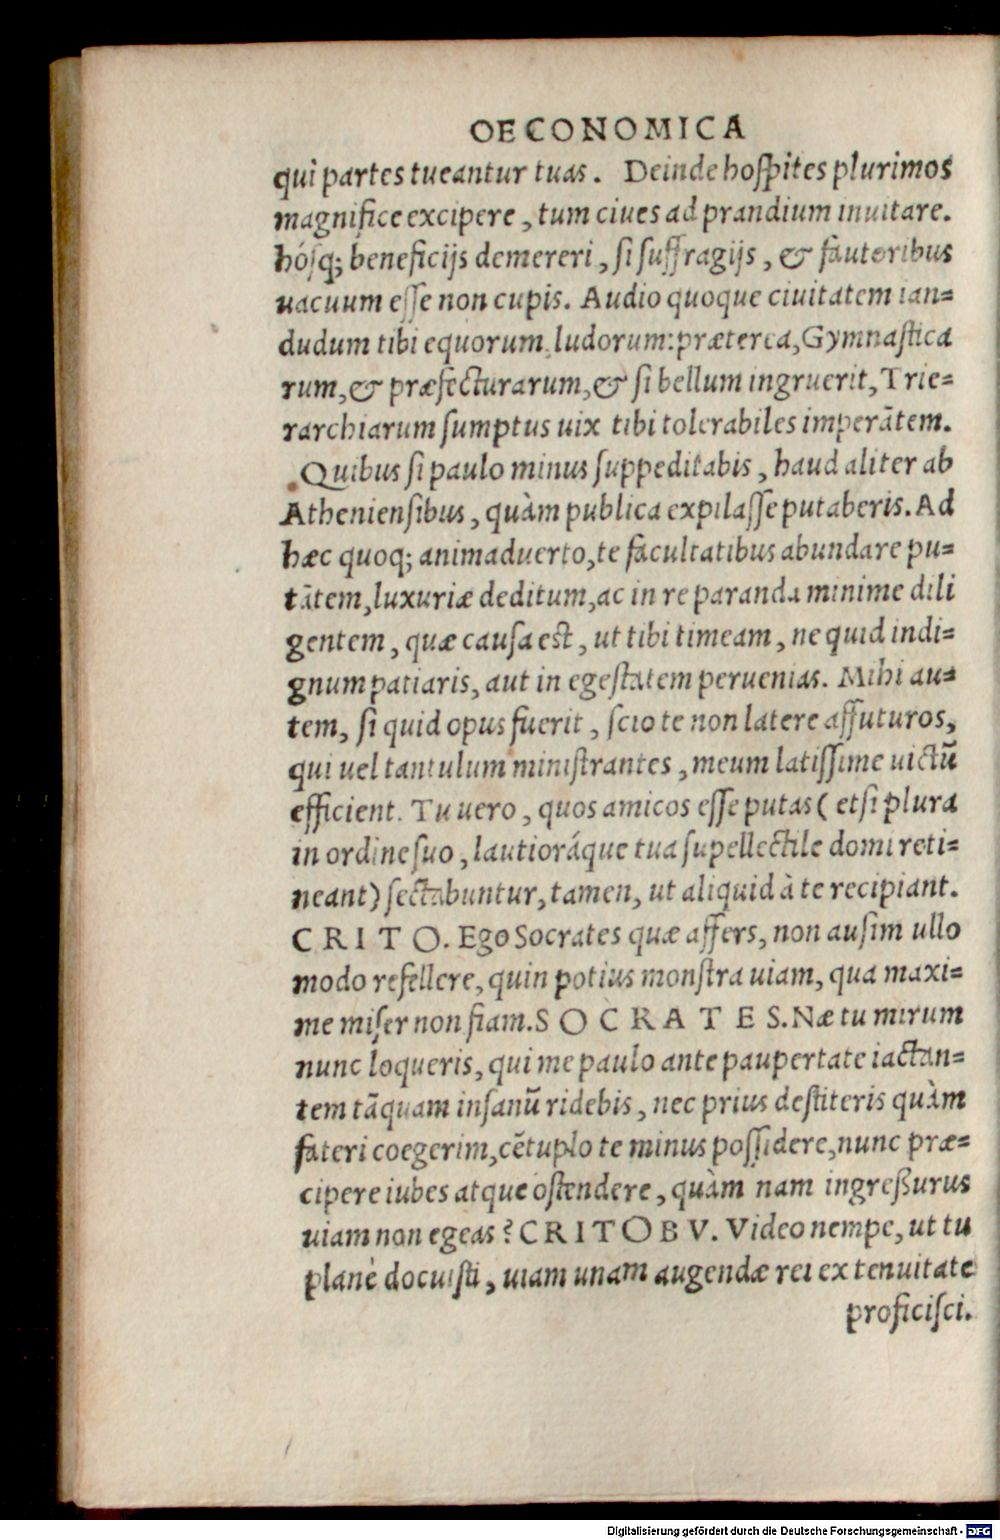 OECONOMICA
qui partes tueantur tuas. Deinde hoſpites plurimos
magnifice excipere, tum ciues ad prandium inuitare.
hóſq; beneficijs demereri, ſi ſuffragijs, & fautoribus
uacuum eſſe non cupis. Audio quoque ciuitatem ian=
dudum tibi equorum, ludorum: præterea, Gymnaſtica
rum, & præfecturarum, & ſi bellum ingruerit, Trie=
rarchiarum ſumptus uix tibi tolerabiles imperãtem.
Quibus ſi paulo minus ſuppeditabis, haud aliter ab
Athenienſibus, quàm publica expilaſſe putaberis. Ad
hæc quoq; animaduerto, te facultatibus abundare pu=
tãtem, luxuriæ deditum, ac in re paranda minime dili
gentem, quæ cauſa est, ut tibi timeam, ne quid indi=
gnum patiaris, aut in egeſtatem peruenias. Mihi au=
tem, ſi quid opus fuerit, ſcio te non latere affuturos,
qui uel tantulum miniſtrantes, meum latiſſime uictũ
efficient. Tu uero, quos amicos eſſe putas ( etſi plura
in ordine ſuo, lautioráque tua ſupellectile domi reti=
neant) ſectabuntur, tamen, ut aliquid à te recipiant.
CRITO. Ego Socrates quæ affers, non auſim ullo
modo refellere, quin potius monſtra uiam, qua maxi=
me miſer non fiam. SOCRATES. Næ tu mirum
nunc loqueris, qui me paulo ante paupertate iactan=
tem tãquam inſanũ ridebis, nec prius deſtiteris quàm
fateri coegerim, cẽtuplo te minus poſſidere, nunc præ=
cipere iubes atque oſtendere, quàm nam ingreßurus
uiam non egeas? CRITOBV. Video nempe, ut tu
planè docuiſti, uiam unam augendæ rei ex tenuitate
proficiſci.
Digitalisierung gefördert durch die Deutsche Forschungsgemeinschaft - DFG